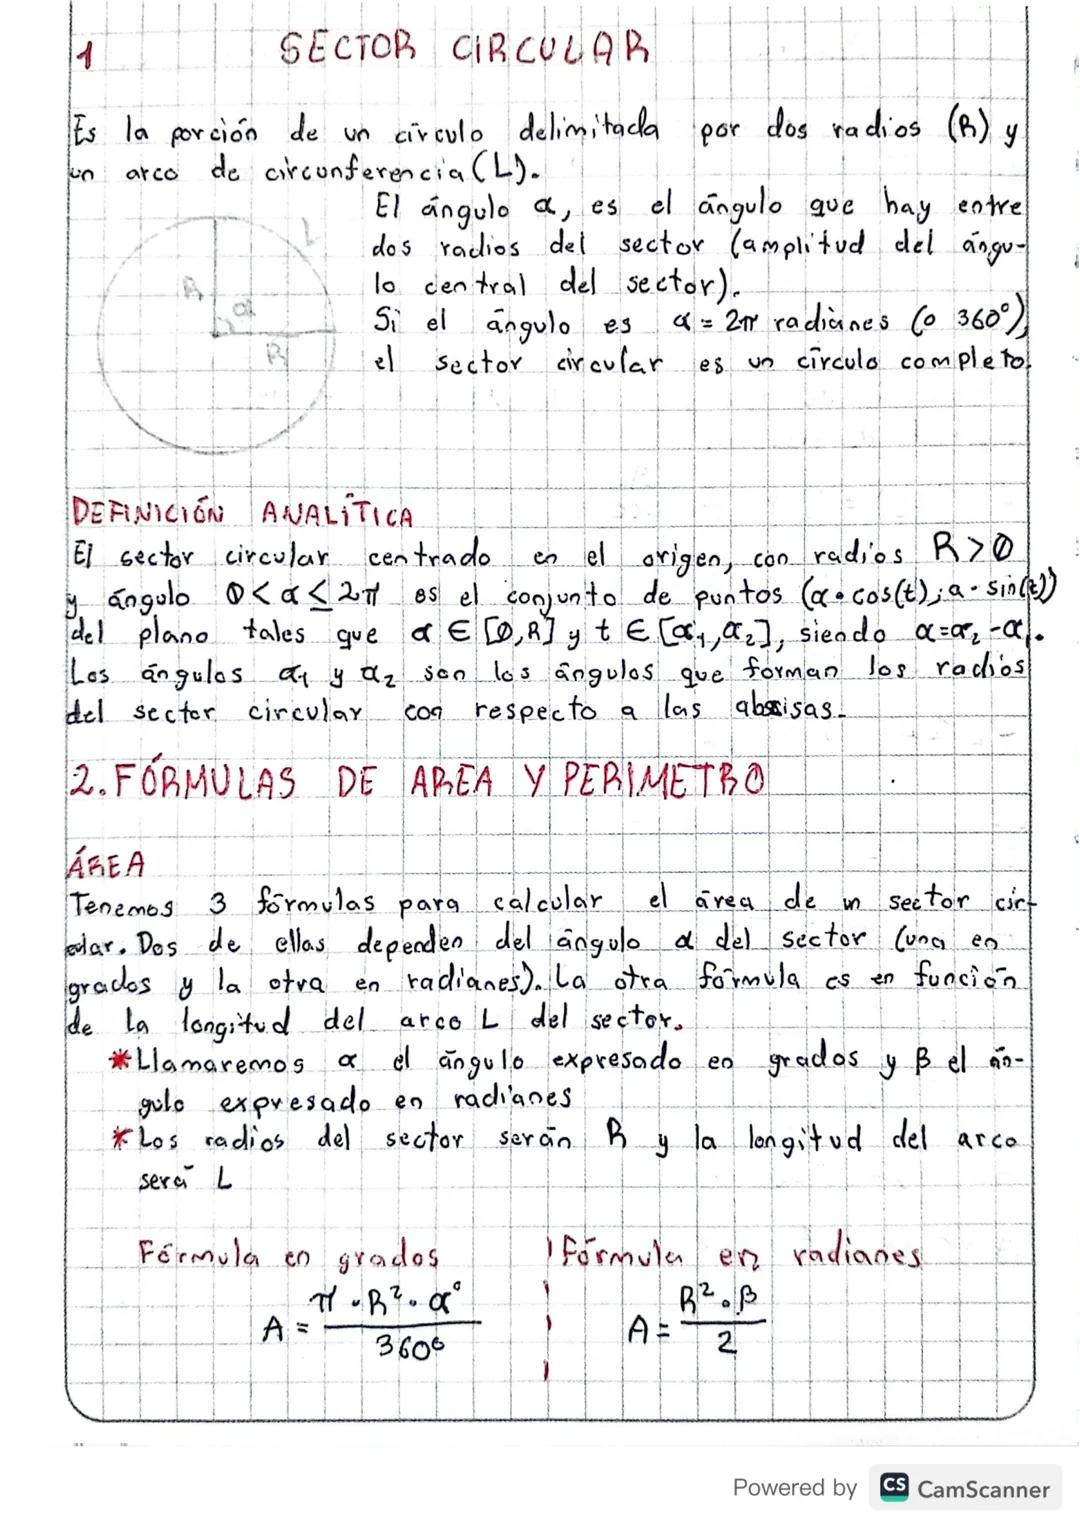 1 SECTOR CIRCULAR
Es la porción de un círculo delimitada por dos radios (R) y
un arco de circunferencia (L).
El ángulo α, es el ángulo que hay entre
dos radios del sector (amplitud del ángu-
lo central del sector).
Si el ángulo es α = 2π radianes (o 360°),
el sector circular es un círculo completo.
L
R
α
R
DEFINICIÓN ANALÍTICA
El sector circular centrado en el origen, con radios R>0
y ángulo 0<α≤2π es el conjunto de puntos (α·cos(t);a·sin(t))
del plano tales que α∈[0,R] y t∈[α1,α2], siendo α=α2-α1.
Los ángulos α1 y α2 son los ángulos que forman los radios
del sector circular con respecto a las absisas.
2. FÓRMULAS DE AREA Y PERIMETRO
ÁREA
Tenemos 3 fórmulas para calcular el área de un sector cir-
cular. Dos de ellas dependen del ángulo α del sector (una en
grados y la otra en radianes). La otra fórmula es en función
de la longitud del arco L del sector.
*Llamaremos α el ángulo expresado en grados y β el án-
gulo expresado en radianes
*Los radios del sector serán R y la longitud del arco
será L
Fórmula en grados Fórmula en radianes
A = π·R²·α° / 360° A = R²·β / 2
Powered by CS CamScanner